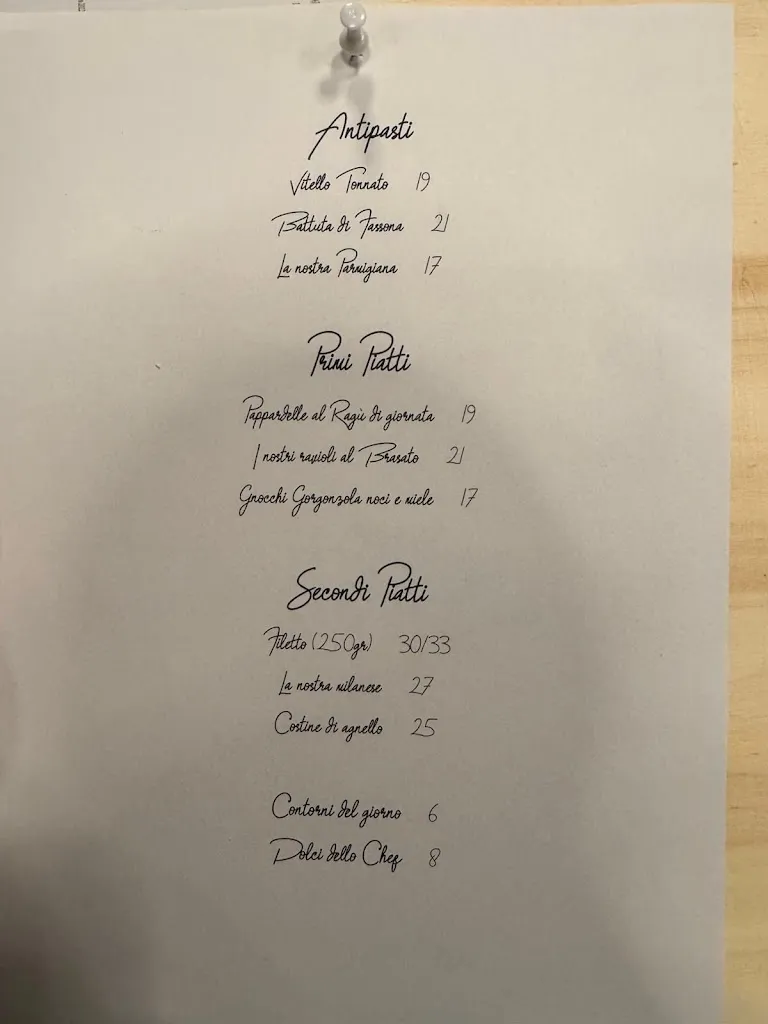 Antipasti
Vitello Tonnato 19
Battuta di Fassona 21
La nostra Parmigiana 17
Primi Piatti
Pappardelle al Ragù di giornata 19
I nostri ravioli al Brasato 21
Gnocchi Gorgonzola noci e miele 17
Secondi Piatti
Filetto (250gr) 30/33
La nostra milanese 27
Costine di agnello 25
Contorni del giorno 6
Dolci dello Chef 8